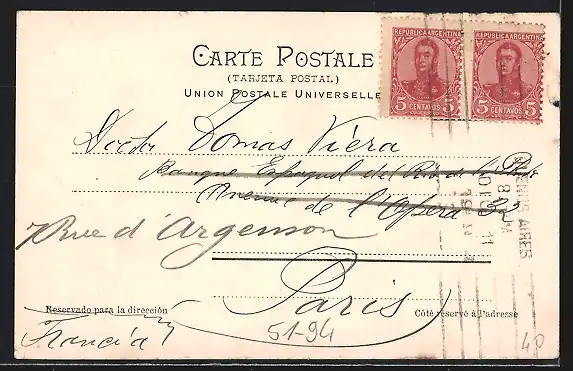 CARTE POSTALE
(TARJETA POSTAL)
UNION POSTALE UNIVERSELLE
REPUBLICA ARGENTINA
5 CENTAVOS 5
REPUBLICA ARGENTINA
5 CENTAVOS 5
Doctor Tomas Viera
Banque Espagnol del Rio de la Plata
Avenue de l'Opera 32
7 Rue d'Argenson
Paris
BUENOS AIRES
Reservado para la dirección
Côté réservé à l'adresse
Francia
51-94
40